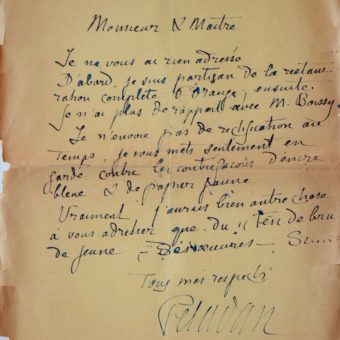 Monsieur & Maître
Je ne vous ai rien adressé
D'abord je suis partisan de la restau
ration complète d'Orange, ensuite
je n'ai plus de rapport avec M. Boissy
Je n'envoie pas de rectification au
Temps, je vous mets seulement en
garde contre les contrefaçons d'encre
bleue & de papier jaune
Vraiment j'aurais bien autre chose
à vous adresser que du
de jeune
Tous mes respects
Péladan